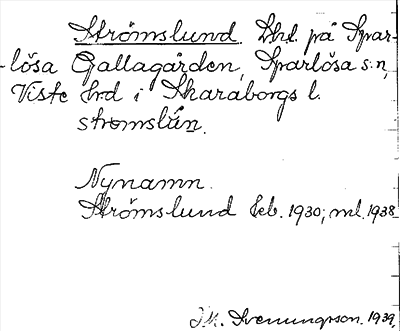 Strömslund. Lhl. på Spar-
-lösa Gallagården, Sparlösa s:n,
Viste hrd i Skaraborgs l.
strømslún.
Nynamn.
Strömslund Geb. 1930; ml. 1938
J.M. Svenungsson. 1939.